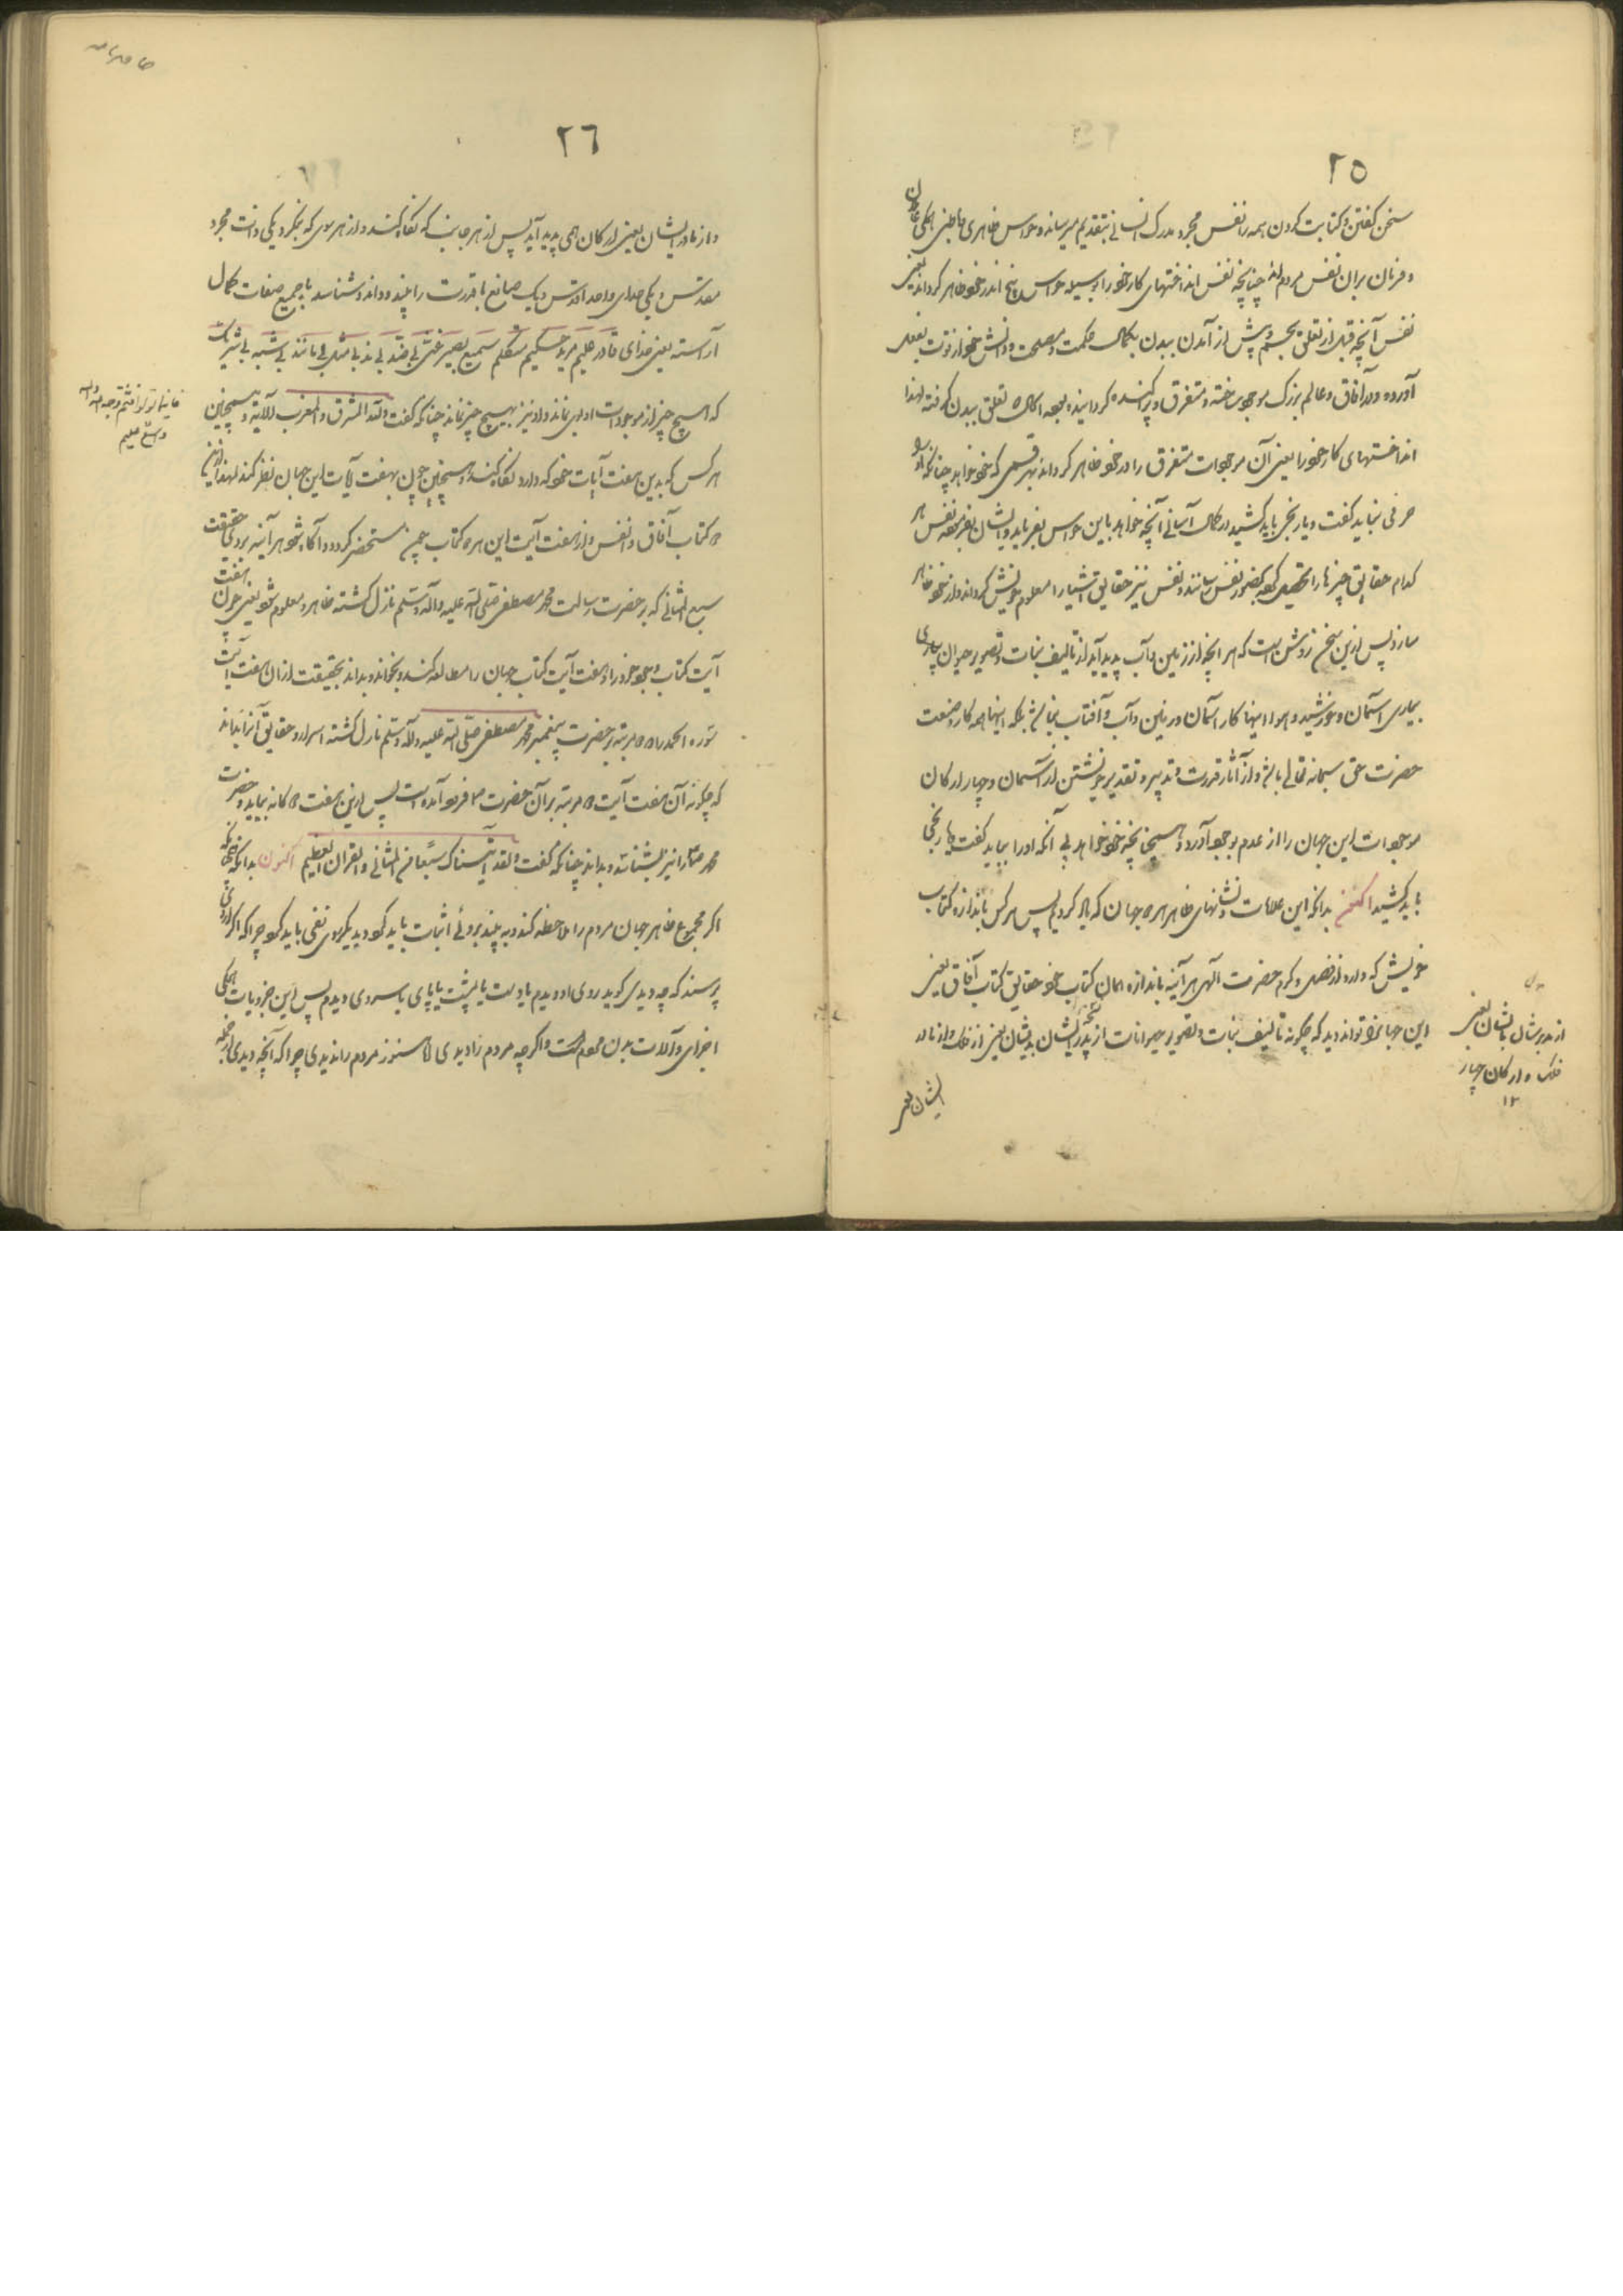 ٢٥
سخن گفتن و کتابت کردن همه را نفس مجرد مدرک انسانی بتقدیم میرساند و حواس ظاهری و باطنی همگی عاملان
و فرمان بران نفس مردم‌اند چنانچه نفس انداختهای کار خود را بوسیله حواس پنج اندر خود ظاهر گرداند یعنی
نفس آنچه قبل از تعلق بجسم و پیش از آمدن ببدن بکمال حکمت و مصلحت و دانش خود از قوت بفعل
آورده و در آفاق و عالم بزرگ موجود ساخته و متفرق و پراکنده گردانیده بود اکنون تعلق ببدن گرفته لهذا
انداختهای کار خود را یعنی آن موجودات متفرق را در خود ظاهر گرداند بهر قسمی که خود خواهد چنانکه او را
حرفی نباید گفت و یا رنجی باید کشید در کمال آسانی آنچه خواهد باین حواس بفرماید و ایشان بفرموده نفس هر
کدام حقایق چیزها را تحصیل کرده بحضور نفس رسانند و نفس نیز حقایق اشیا را معلوم خویش گرداند و از خود ظاهر
سازد پس ازین سخن روشن است که هر آنچه از زمین و آب پدید آید از تألیف نبات و تصویر حیوان بیاری
بیاری آسمان و خورشید و هوا اینها کار آسمان و زمین و آب و آفتاب نباشد بلکه اینها همه کار و صنعت
حضرت حق سبحانه تعالی باشد و از آثار قدرت و تدبیر و تقدیر خویشتن از آسمان و چهار ارکان
موجودات این جهان را از عدم بوجود آورد و همچنانچه خود خواهد بی آنکه او را بباید گفت و یا رنجی
باید کشید اکنون بدانکه این علامات و نشانهای ظاهر هر دو جهان که یاد کردیم پس هر کس باندازه کتاب
خویش که دارد از فضل و کرم حضرت الهی هر آینه باندازه همان کتاب خود حقایق کتاب آفاق یعنی
این جهان را تواند دید که چگونه تألیف نبات و تصویر حیوانات از پدر ایشان بدیشان یعنی از فلک و از مادر
ایشان یعنی
از پدر ایشان بایشان یعنی
فلک و ارکان چهار
١٢
٢٦
و از مادر ایشان یعنی ارکان همی پدید آید پس از هر جانب که نگاه کند و از هر سوی که بنگرد یکی ذات مجرد
مقدس و یکی خدای واحد اقدس و یک صانع با قدرت را بیند و داند و شناسد با جمیع صفات کمال
آراسته یعنی خدای قادر علیم مرید حکیم متکلم سمیع بصیر غنی بی ضد بی ند بی مثل بی مانند بی شبه بی شریک
که هیچ چیز از موجودات او را نماند و او نیز بهیچ چیز نماند چنانکه گفت ولله المشرق والمغرب الآیة و همچنین
هر کس که بدین هفت آیات خود که دارد نگاه کند و همچنین چون بهفت آیات این جهان نظر کند لهذا ازین
دو کتاب آفاق و انفس و از هفت آیت این هر دو کتاب چون مستحضر گردد و آگاه شود هر آینه بر وی حقیقت
سبع المثانی که بر حضرت رسالت محمد مصطفی صلی الله علیه وآله وسلم نازل گشته ظاهر و معلوم شود یعنی چون هفت
آیت کتاب وجود خود را و هفت آیت کتاب جهان را مطالعه کند و بخواند و بداند بحقیقت از آن هفت آیت
سوره الحمد را که دو مرتبه بر حضرت پیغمبر محمد مصطفی صلی الله علیه وآله وسلم نازل گشته اسرار و حقایق آنرا بداند
که چگونه آن هفت آیت دو مرتبه بر آن حضرت فرود آمده است پس ازین هفت دوگانه بباید و حضرت
محمد را نیز بشناسد و بداند چنانکه گفت ولقد آتیناک سبعا من المثانی والقرآن العظیم اکنون بدانکه
اگر مجموع ظاهر جهان مردم را ملاحظه کند و ببیند بروئے اثبات باید کرد و بدیگر روی نفی باید کرد چرا که اگر از وی
پرسند که چه دیدی گوید روی او دیدم یا دست یا پشت یا پای یا سر وی دیدم پس این جزویات همگی
اجزای و آلات بدن مردم است و اگر چه مردم را دیدی اما هنوز مردم را ندیدی چرا که آنچه دیدی از جمله
فاینما تولوا فثم وجه الله ان الله
واسع علیم